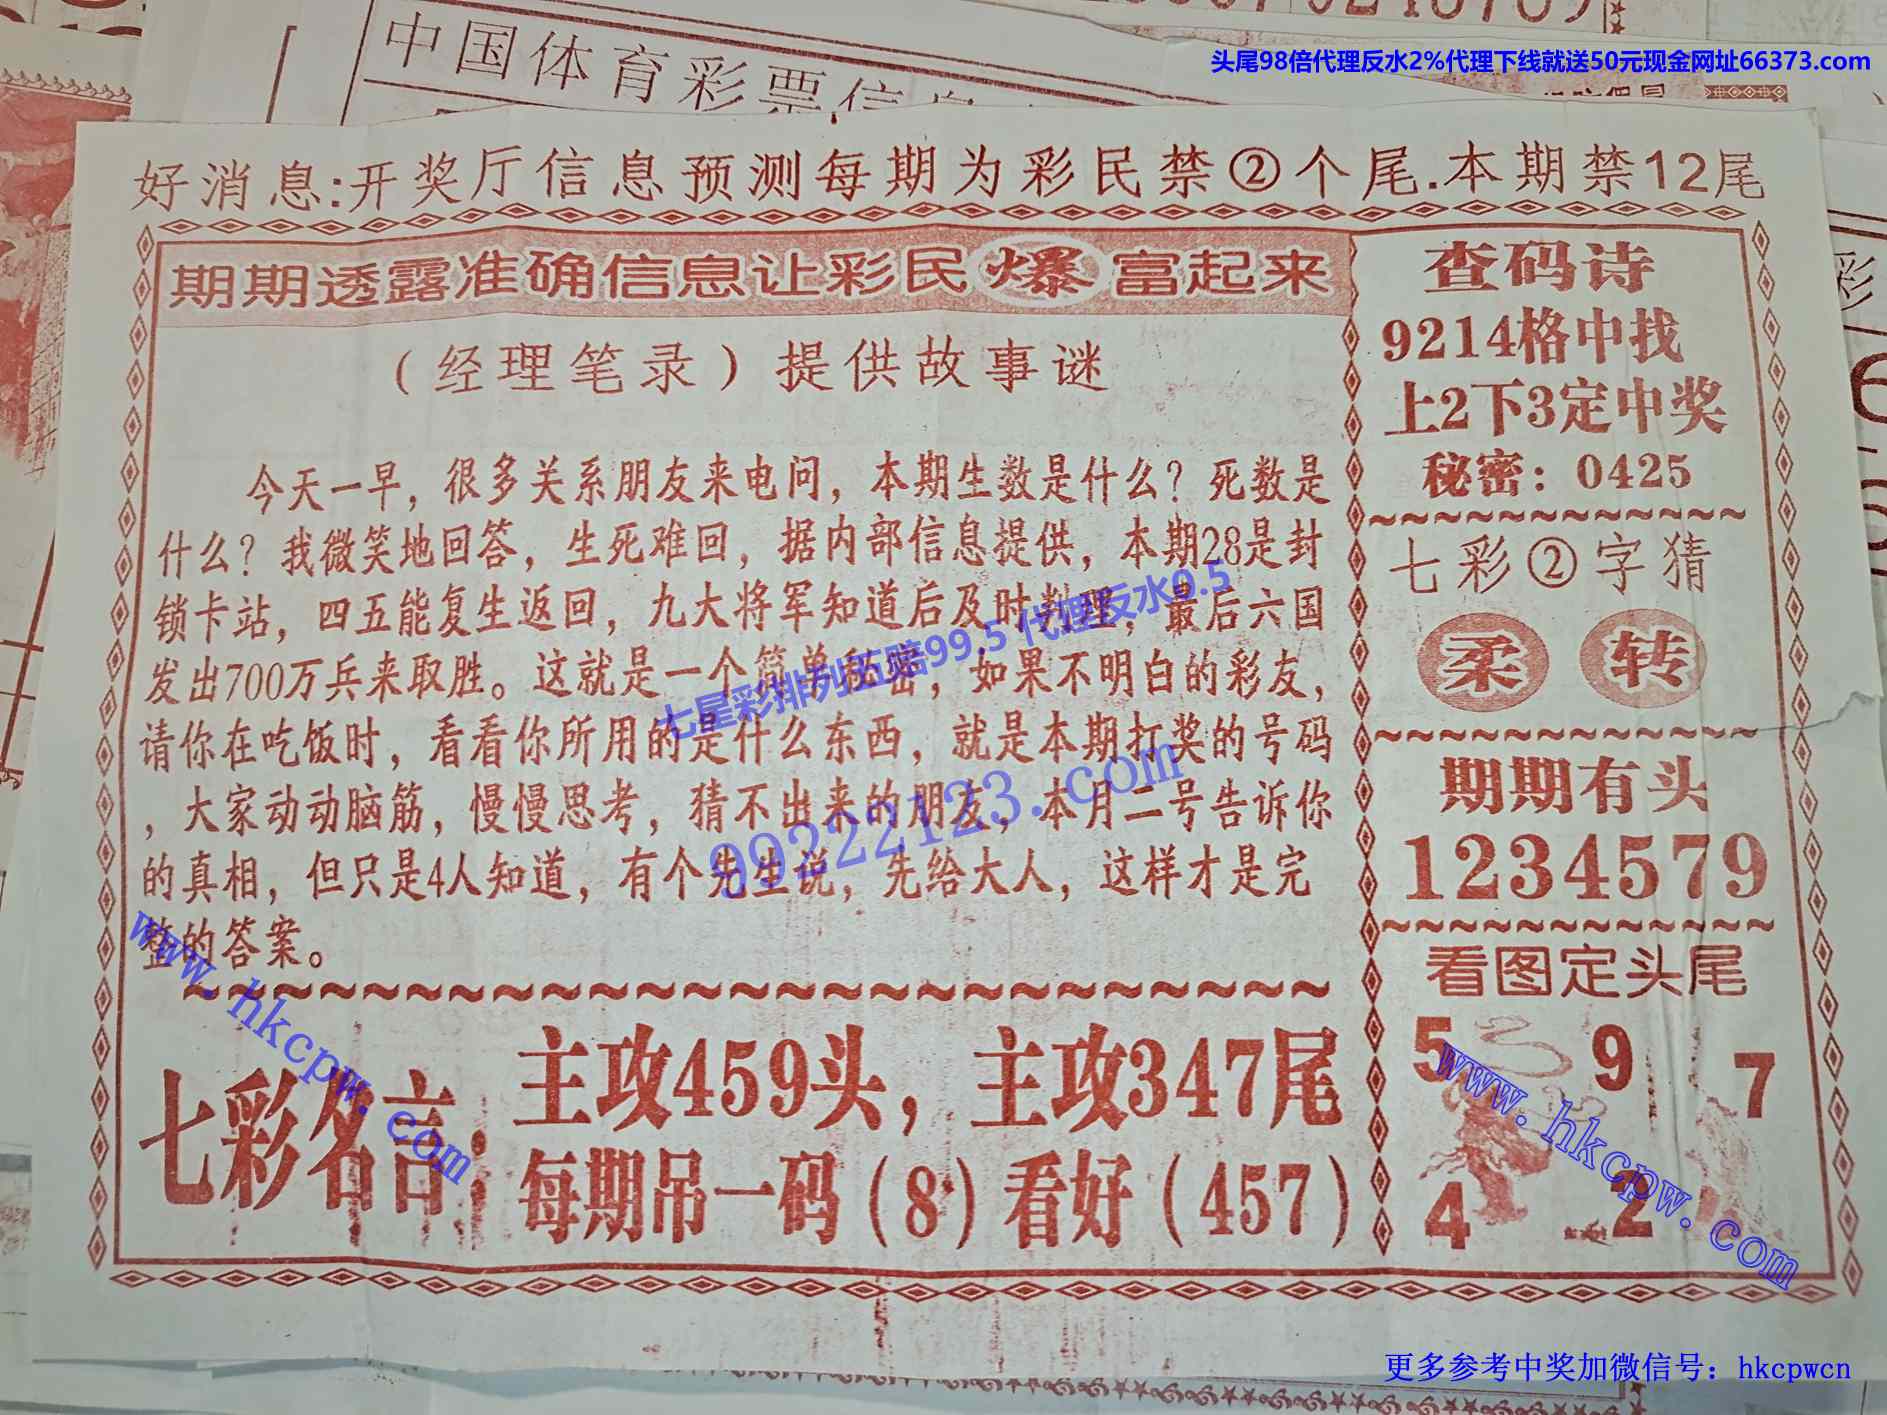 头尾98倍代理反水2%代理下线就送50元现金网址66373.com
中国体育彩票信息
好消息:开奖厅信息预测每期为彩民禁②个尾.本期禁12尾
期期透露准确信息让彩民爆富起来
（经理笔录）提供故事谜
今天一早，很多关系朋友来电问，本期生数是什么？死数是
什么？我微笑地回答，生死难回，据内部信息提供，本期28是封
锁卡站，四五能复生返回，九大将军知道后及时判理，最后六国
发出700万兵来取胜。这就是一个简单秘密，如果不明白的彩友，
请你在吃饭时，看看你所用的是什么东西，就是本期打奖的号码
，大家动动脑筋，慢慢思考，猜不出来的朋友，本月二号告诉你
的真相，但只是4人知道，有个先生说，先给大人，这样才是完
整的答案。
七彩名言：
主攻459头，主攻347尾
每期吊一码（8）看好（457）
查码诗
9214格中找
上2下3定中奖
秘密：0425
七彩②字猜
柔 转
期期有头
1234579
看图定头尾
5 9 7
4 2
七星彩排列五赔99.5 代理反水9.5
99222123.com
www.hkcpw.com
www.hkcpw.com
更多参考中奖加微信号：hkcpwcn